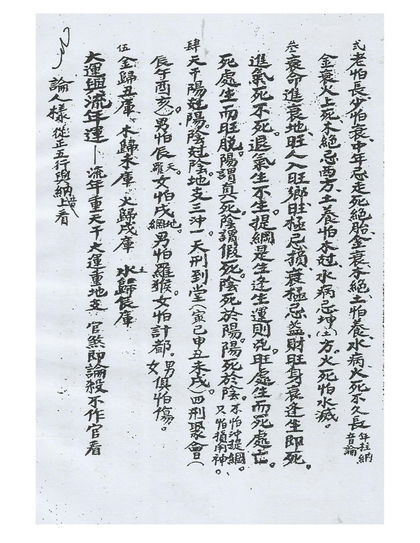 弍 老怕長少怕衰中年忌走死絕胎金衰木絕土怕養水病火死不久長 年柱納音論
金衰火上死木絕忌酉方土養怕木过水病忌坤(土)方火死怕水滅。
叁 衰命進衰地旺人入旺鄉旺極忌損衰極忌益財旺身衰逢生即死
進氣死不死退氣生不生提綱是生逢生運則死旺處生而死處亡。
死處生而旺脱。陽謂真死陰謂假死陰死於陽陽死於陰。 不怕沖提綱只怕損用神、
肆 天干陽尅陽陰尅陰地支二沖一天刑到堂(寅己申丑未戌)四刑聚會(
辰午酉亥)男怕辰天羅女怕戌地網男怕羅猴女怕計都。男女俱怕傷。
伍 金歸丑庫、木歸未庫、火歸戌庫 水土歸辰庫
大運與流年運—流年重天干大運重地支 官煞即論殺不作官看
論人樣從正五行與納音上看